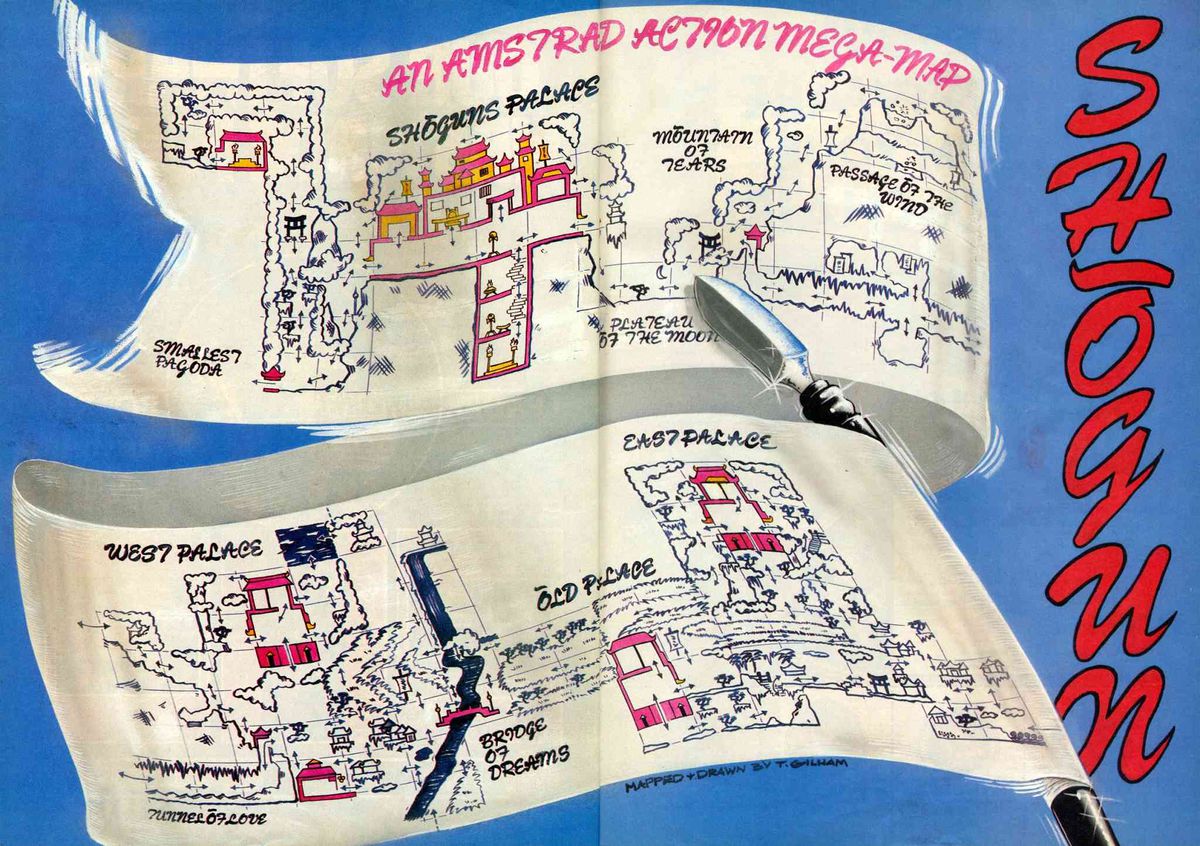 AN AMSTRAD ACTION MEGA-MAP
SHŌGUNS PALACE
MŌUNTAIN
ŌF
TEARS
PASSAGE ŌF THE
WIND
SMALLEST
PAGŌDA
PLATEAU
ŌF THE MŌŌN
SHOGUN
EAST PALACE
WEST PALACE
ŌLD PALACE
BRIDGE
ŌF
DREAMS
TUNNEL ŌF LŌVE
MAPPED + DRAWN BY T. GILHAM